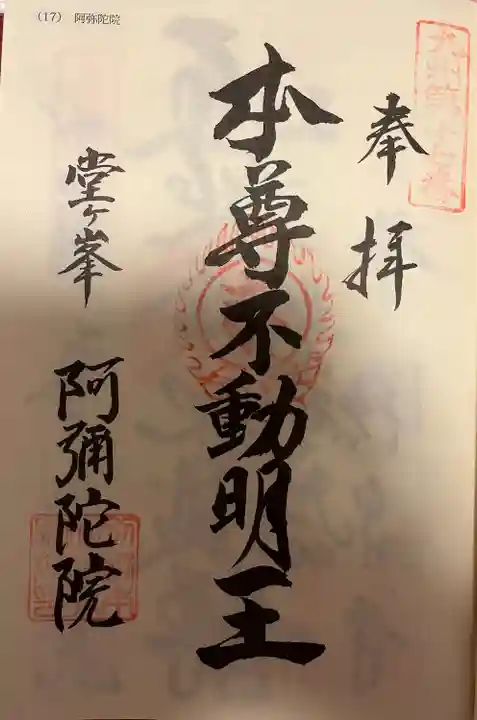 (17) 阿弥陀院
奉拝
本尊不動明王
堂ヶ峯 阿彌陀院